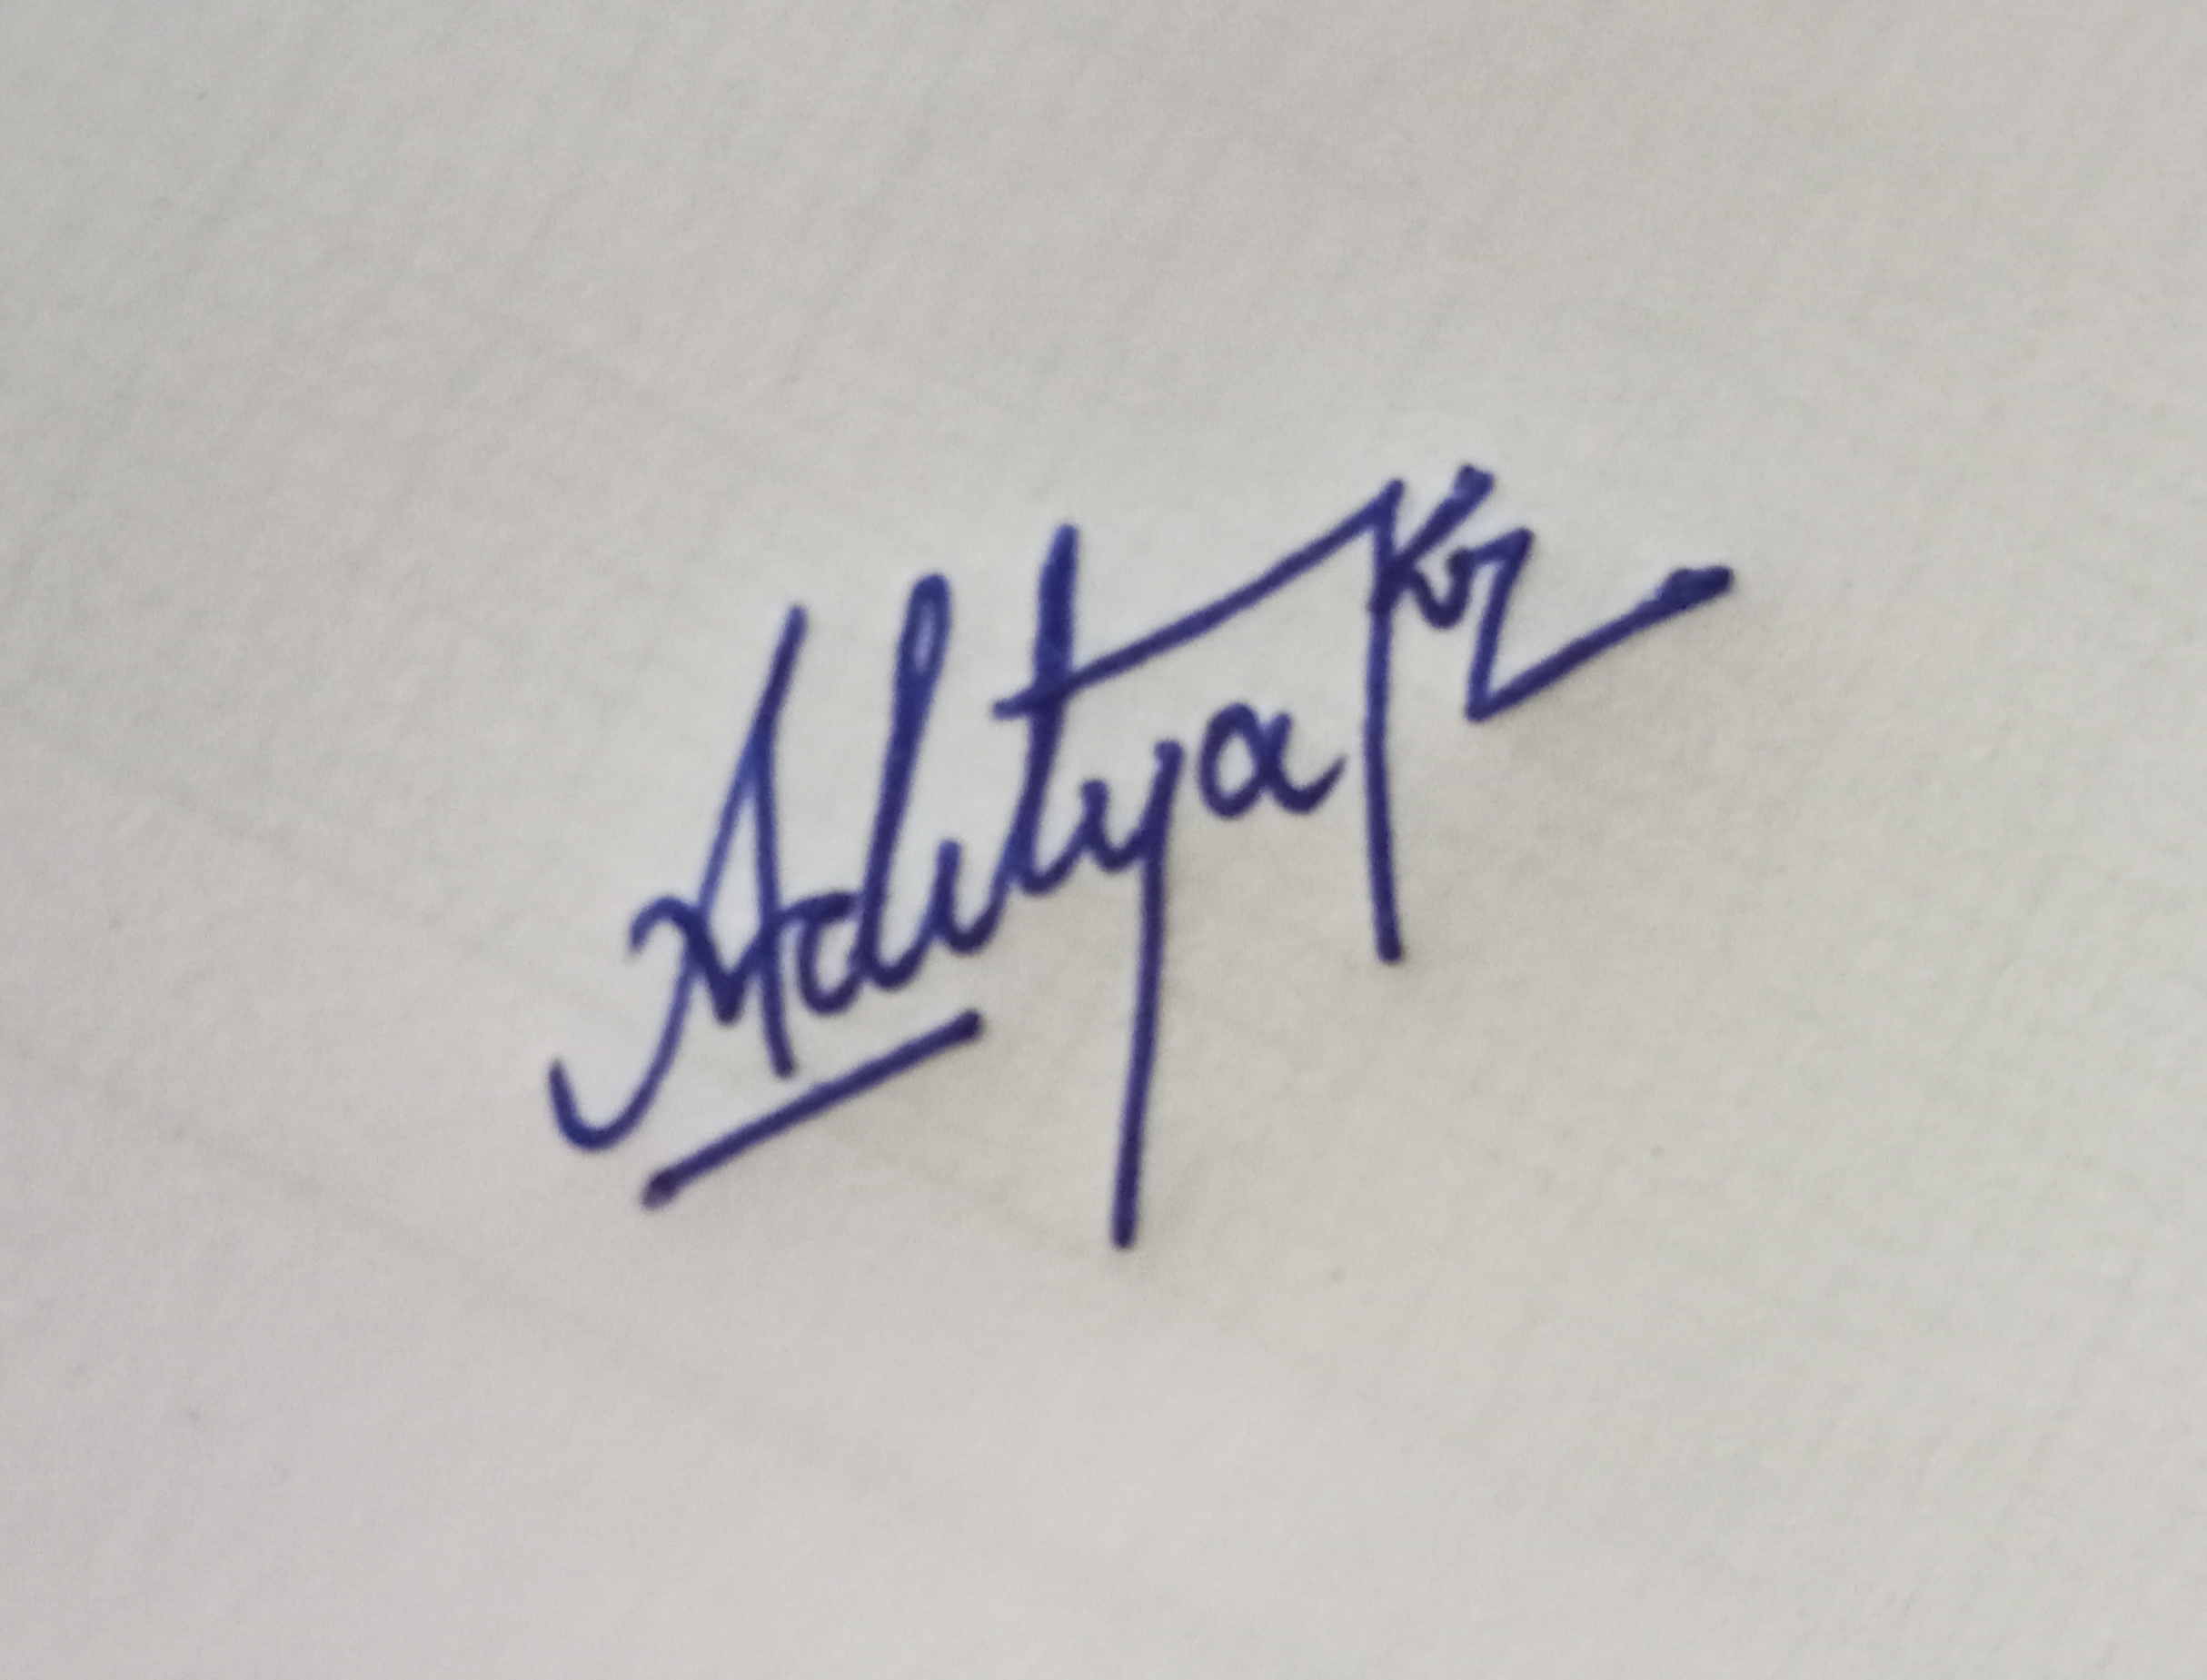 Aditya Kr